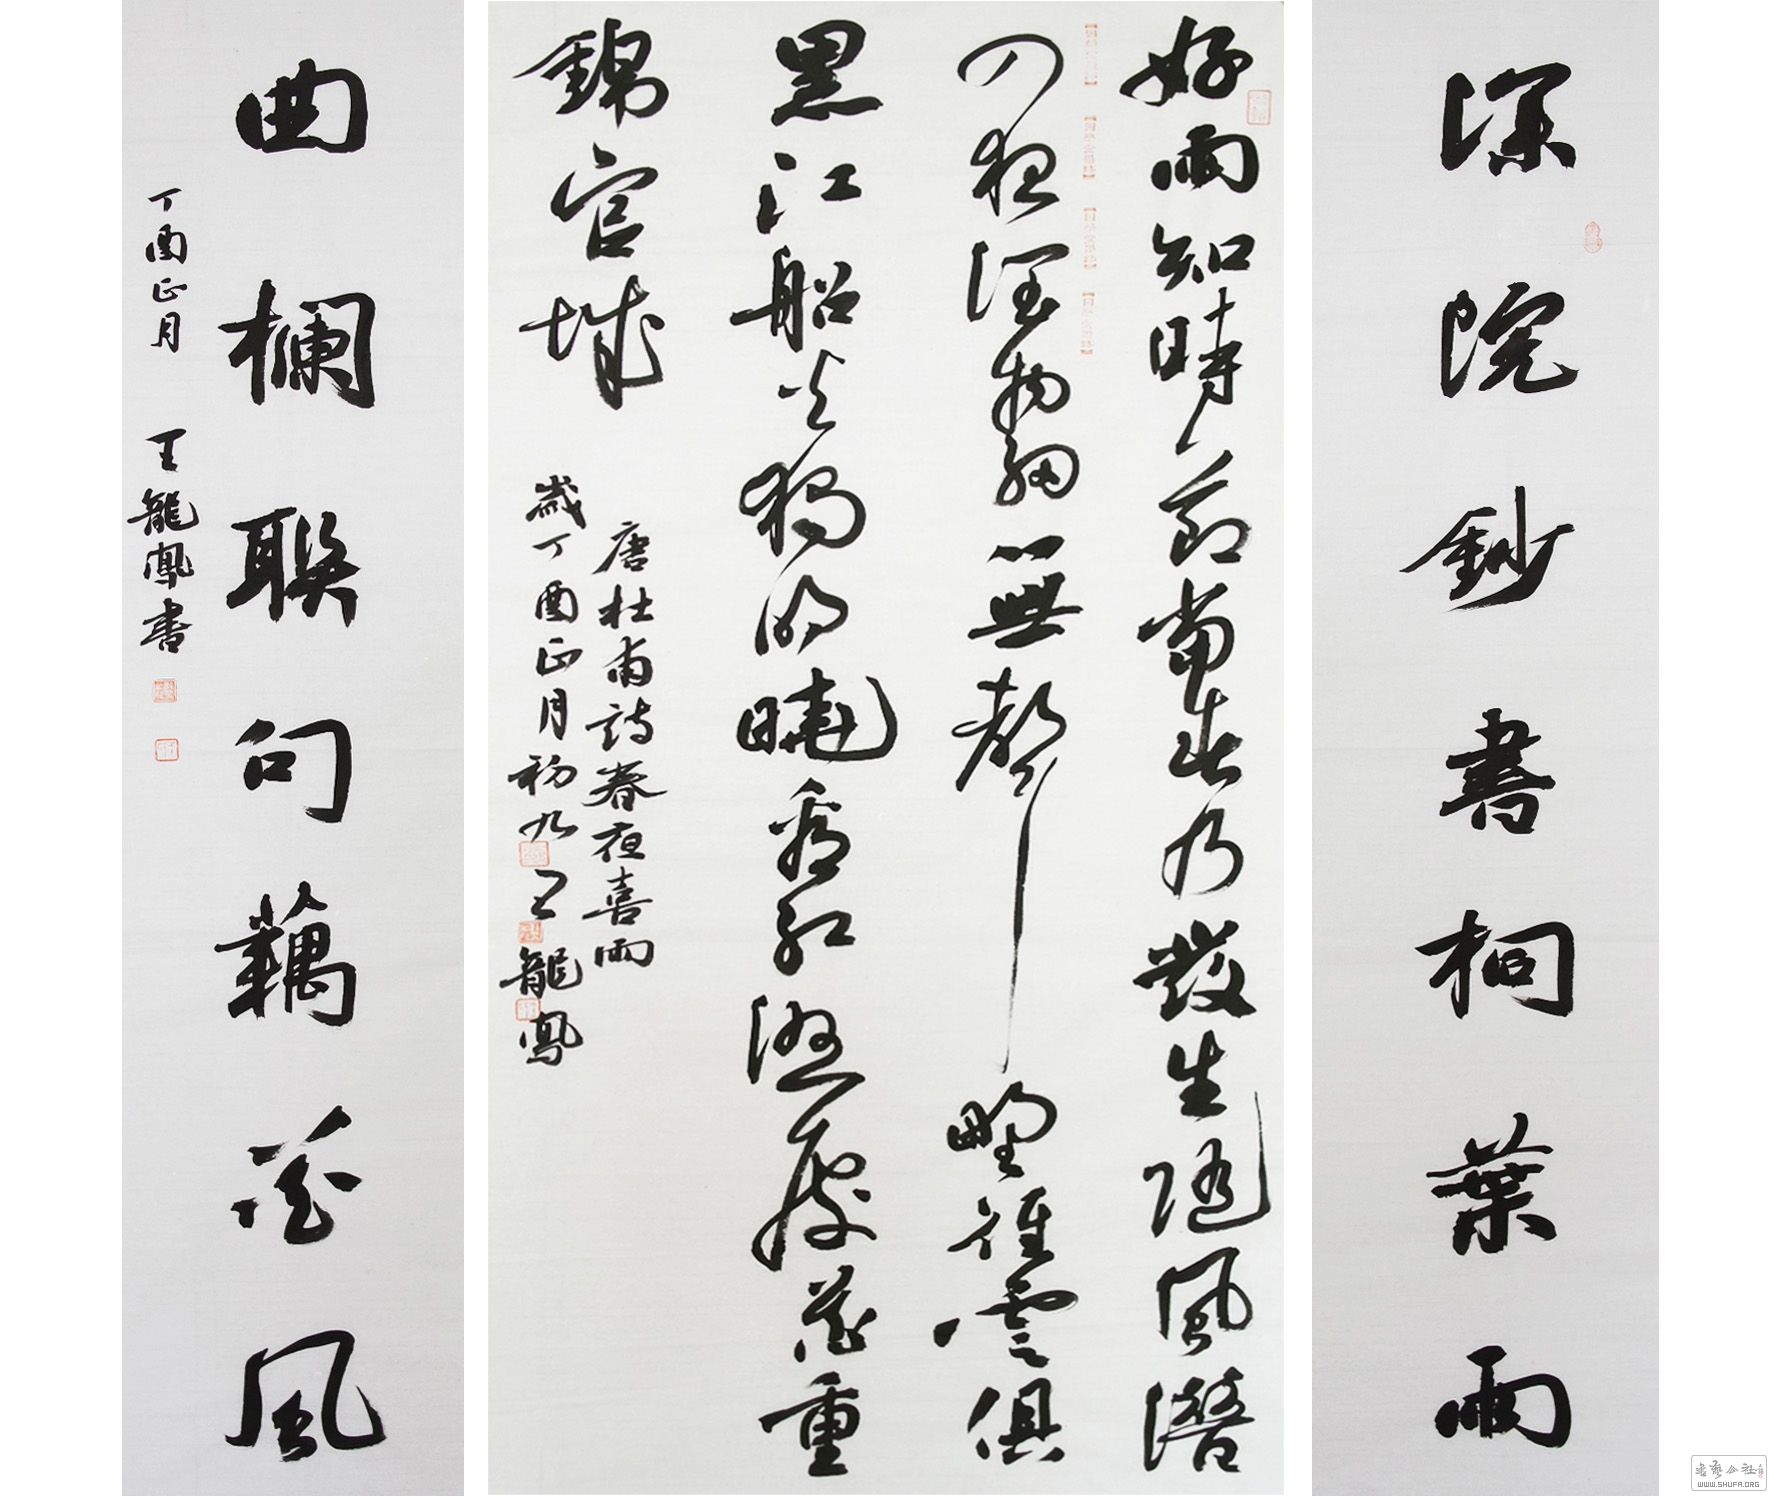 深院鈔書桐葉雨
好雨知時節當春乃發生隨風潛
入夜潤物細無聲野徑雲俱
黑江船火獨明曉看紅濕處花重
錦官城
唐杜甫詩春夜喜雨
歲丁酉正月初九王龍鳳
曲欄聯句藕花風
丁酉正月 王龍鳳書
WWW.SHUFA.ORG